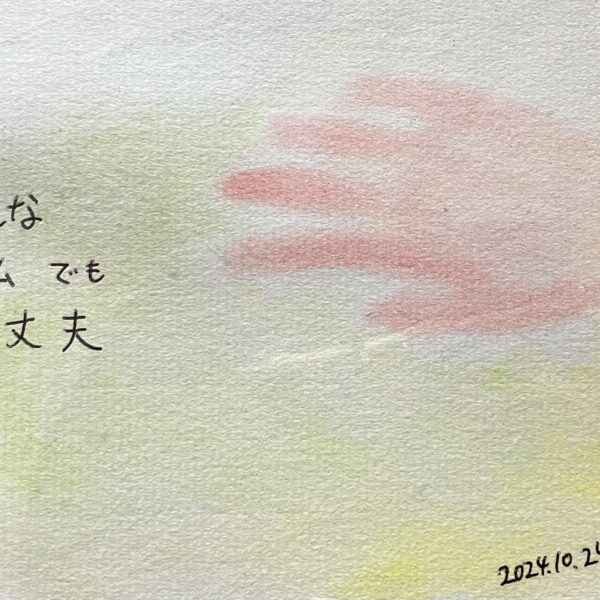 な
でも
丈夫
2024.10.24